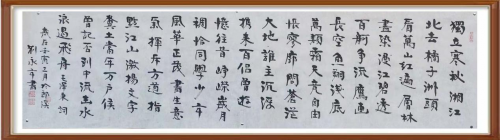 獨立寒秋湘江
北去橘子洲頭
看萬山紅遍層林
盡染漫江碧透
百舸爭流鷹擊
長空魚翔淺底
萬類霜天競自由
悵寥廓問蒼茫
大地誰主沉浮
携来百侣曾遊
憶往昔崢嶸歲月
稠恰同學少年
風華正茂書生意
氣揮斥方遒指
點江山激揚文字
糞土當年萬户侯
曾記否到中流击水
浪遏飛舟 毛澤東詞
壬寅三月於
劉永 書